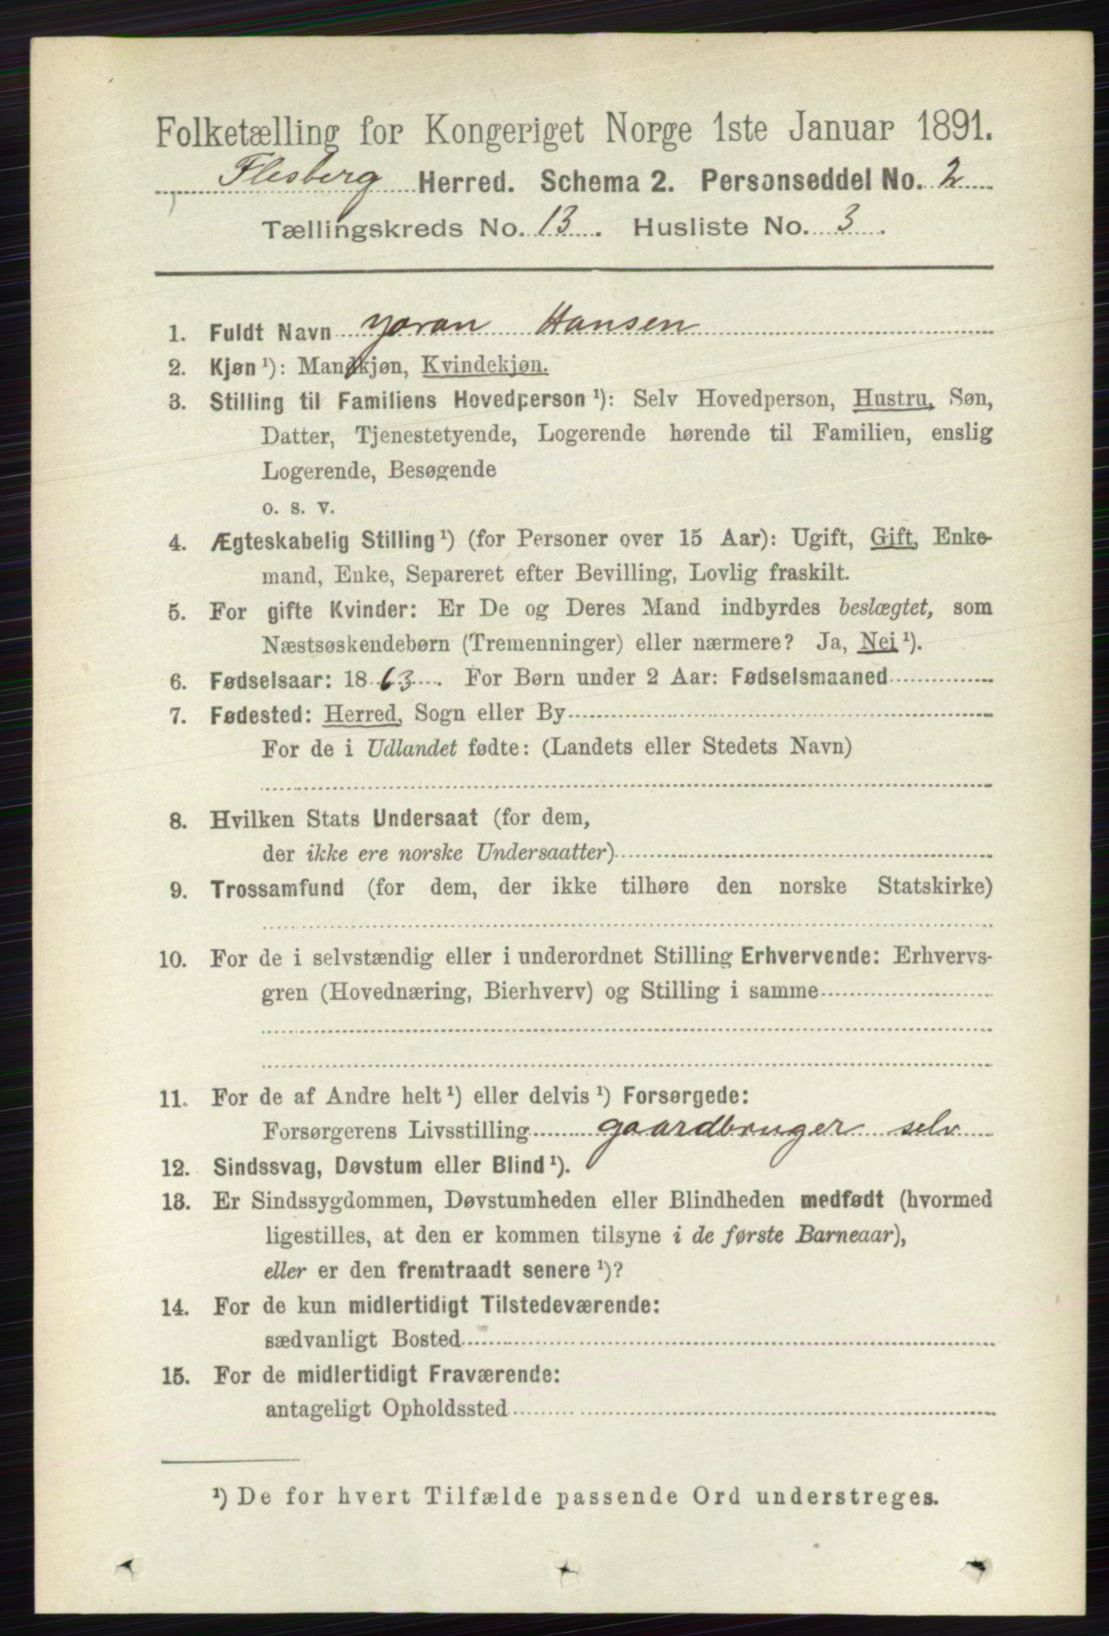 Folketælling for Kongeriget Norge 1ste Januar 1891.
Flesberg Herred. Schema 2. Personseddel No. 2
Tællingskreds No. 13. Husliste No. 3.
1. Fuldt Navn Goran Hansen
2. Kjøn ¹): Mandkjøn, Kvindekjøn.
3. Stilling til Familiens Hovedperson ¹): Selv Hovedperson, Hustru, Søn,
Datter, Tjenestetyende, Logerende hørende til Familien, enslig
Logerende, Besøgende
o. s. v.
4. Ægteskabelig Stilling ¹) (for Personer over 15 Aar): Ugift, Gift, Enke-
mand, Enke, Separeret efter Bevilling, Lovlig fraskilt.
5. For gifte Kvinder: Er De og Deres Mand indbyrdes beslægtet, som
Næstsøskendebørn (Tremenninger) eller nærmere? Ja, Nei ¹).
6. Fødselsaar: 1863. For Børn under 2 Aar: Fødselsmaaned
7. Fødested: Herred, Sogn eller By
For de i Udlandet fødte: (Landets eller Stedets Navn)
8. Hvilken Stats Undersaat (for dem,
der ikke ere norske Undersaatter)
9. Trossamfund (for dem, der ikke tilhøre den norske Statskirke)
10. For de i selvstændig eller i underordnet Stilling Erhvervende: Erhvervs-
gren (Hovednæring, Bierhverv) og Stilling i samme
11. For de af Andre helt ¹) eller delvis ¹) Forsørgede:
Forsørgerens Livsstilling gaardbruger selv
12. Sindssvag, Døvstum eller Blind ¹).
13. Er Sindssygdommen, Døvstumheden eller Blindheden medfødt (hvormed
ligestilles, at den er kommen tilsyne i de første Barneaar),
eller er den fremtraadt senere ¹)?
14. For de kun midlertidigt Tilstedeværende:
sædvanligt Bosted
15. For de midlertidigt Fraværende:
antageligt Opholdssted
¹) De for hvert Tilfælde passende Ord understreges.